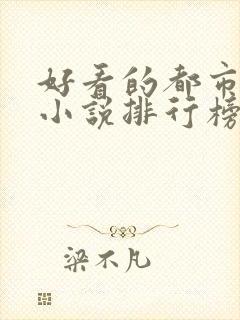 好看的都市
小说排行榜
梁不凡